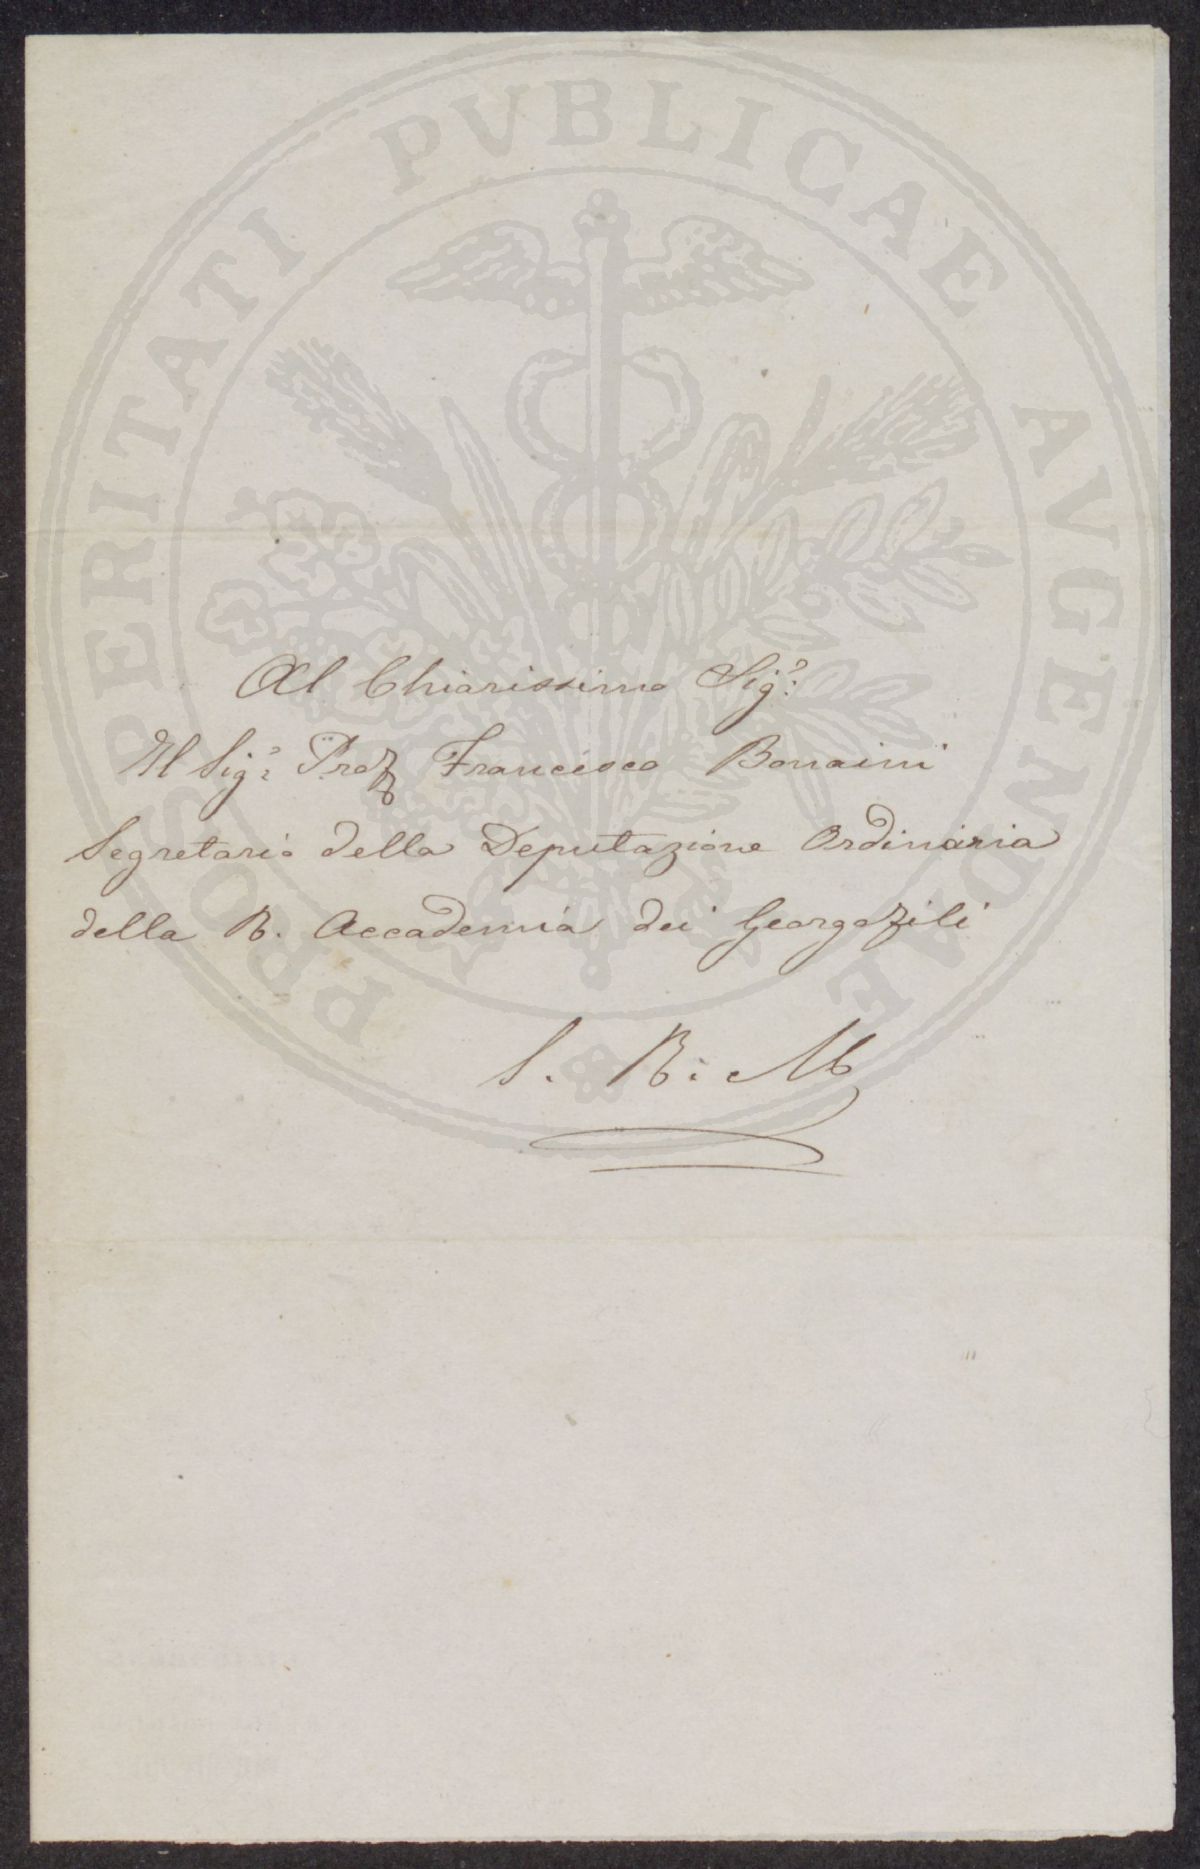 PROSPERITATI PUBLICAE AVGENDAE
Al Chiarissimo Sigr:
Il Sigr Prof Francesco Bonaini
Segretario della Deputazione Ordinaria
della R. Accademia dei Georgofili
S. R. M